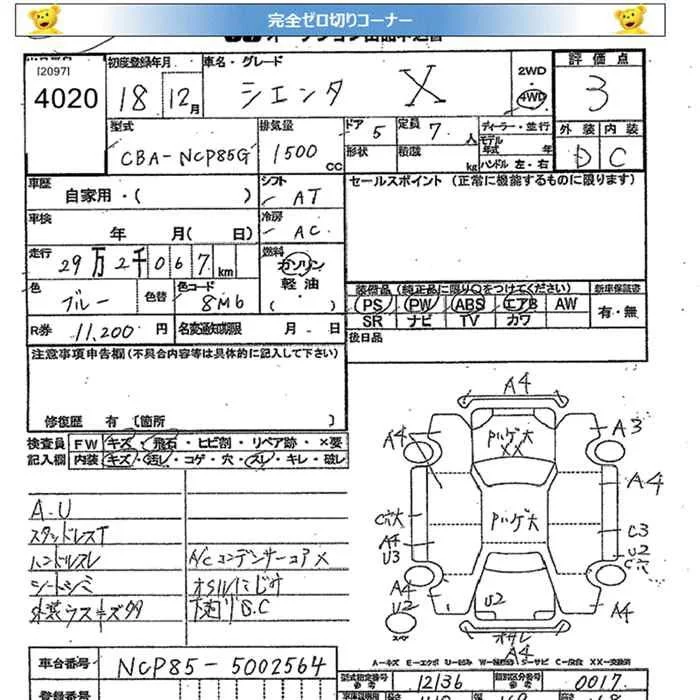 完全ゼロ切りコーナー
[2097]
4020
初度登録年月
18 12月
車名・グレード
シエンタ X
2WD
4WD
評価点
3
外装 内装
D C
型式
CBA-NCP85G
排気量
1500 CC
ドア 5
定員 7 人
形状
積載 kg
ディーラー・並行
モデル年式 年
ハンドル 左・右
車歴
自家用・( )
シフト
AT
セールスポイント (正常に機能するものに限ります)
車検
年 月( 日)
冷房
AC
走行
29万2千067 km
燃料
ガソリン
軽油
( )
色
ブルー
色替
色コード
8M6
装備品(純正品に限り○をつけてください)
新車保証書
PS PW ABS エアB AW
SR ナビ TV カワ
有・無
R券 11,200 円
名変通知期限 月 日
後日品
注意事項申告欄(不具合内容等は具体的に記入して下さい)
修復歴 有 〔箇所 〕
検査員記入欄
FW キズ・飛石・ヒビ割・リペア跡・×要
内装 キズ・汚レ・コゲ・穴・スレ・キレ・破レ
A-U
スタッドレスT
ハンドルスレ
シートシミ
外装ラスキズタタ
A/Cコンデンサーコア×
オイルにじみ
下廻りS.C
A4
A4
Pハゲ大
XX
A3
A4
Pハゲ大
C穴大
A4
U3
C3
U2
C穴
A4
U2
U2
A4
オサレ
A4
スレ
A-キズ E-エクボ U-凹み W-補修跡 S-サビ C-腐食 XX-交換済
車台番号
NCP85-5002564
型式指定番号
12136
類別区分番号
0017
登録番号